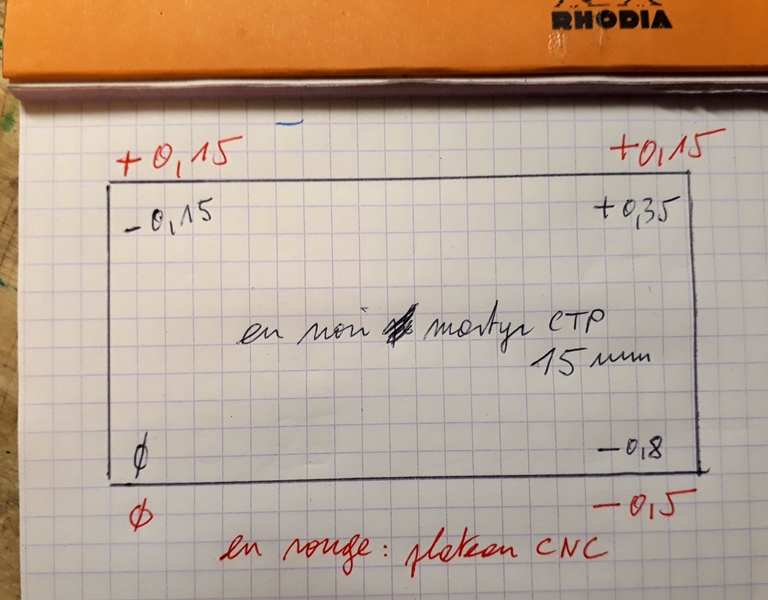 RHODIA
+0,15 +0,15
-0,15 +0,35
en noir martyr CTP
15 mm
φ -0,8
φ -0,5
en rouge : plateau CNC